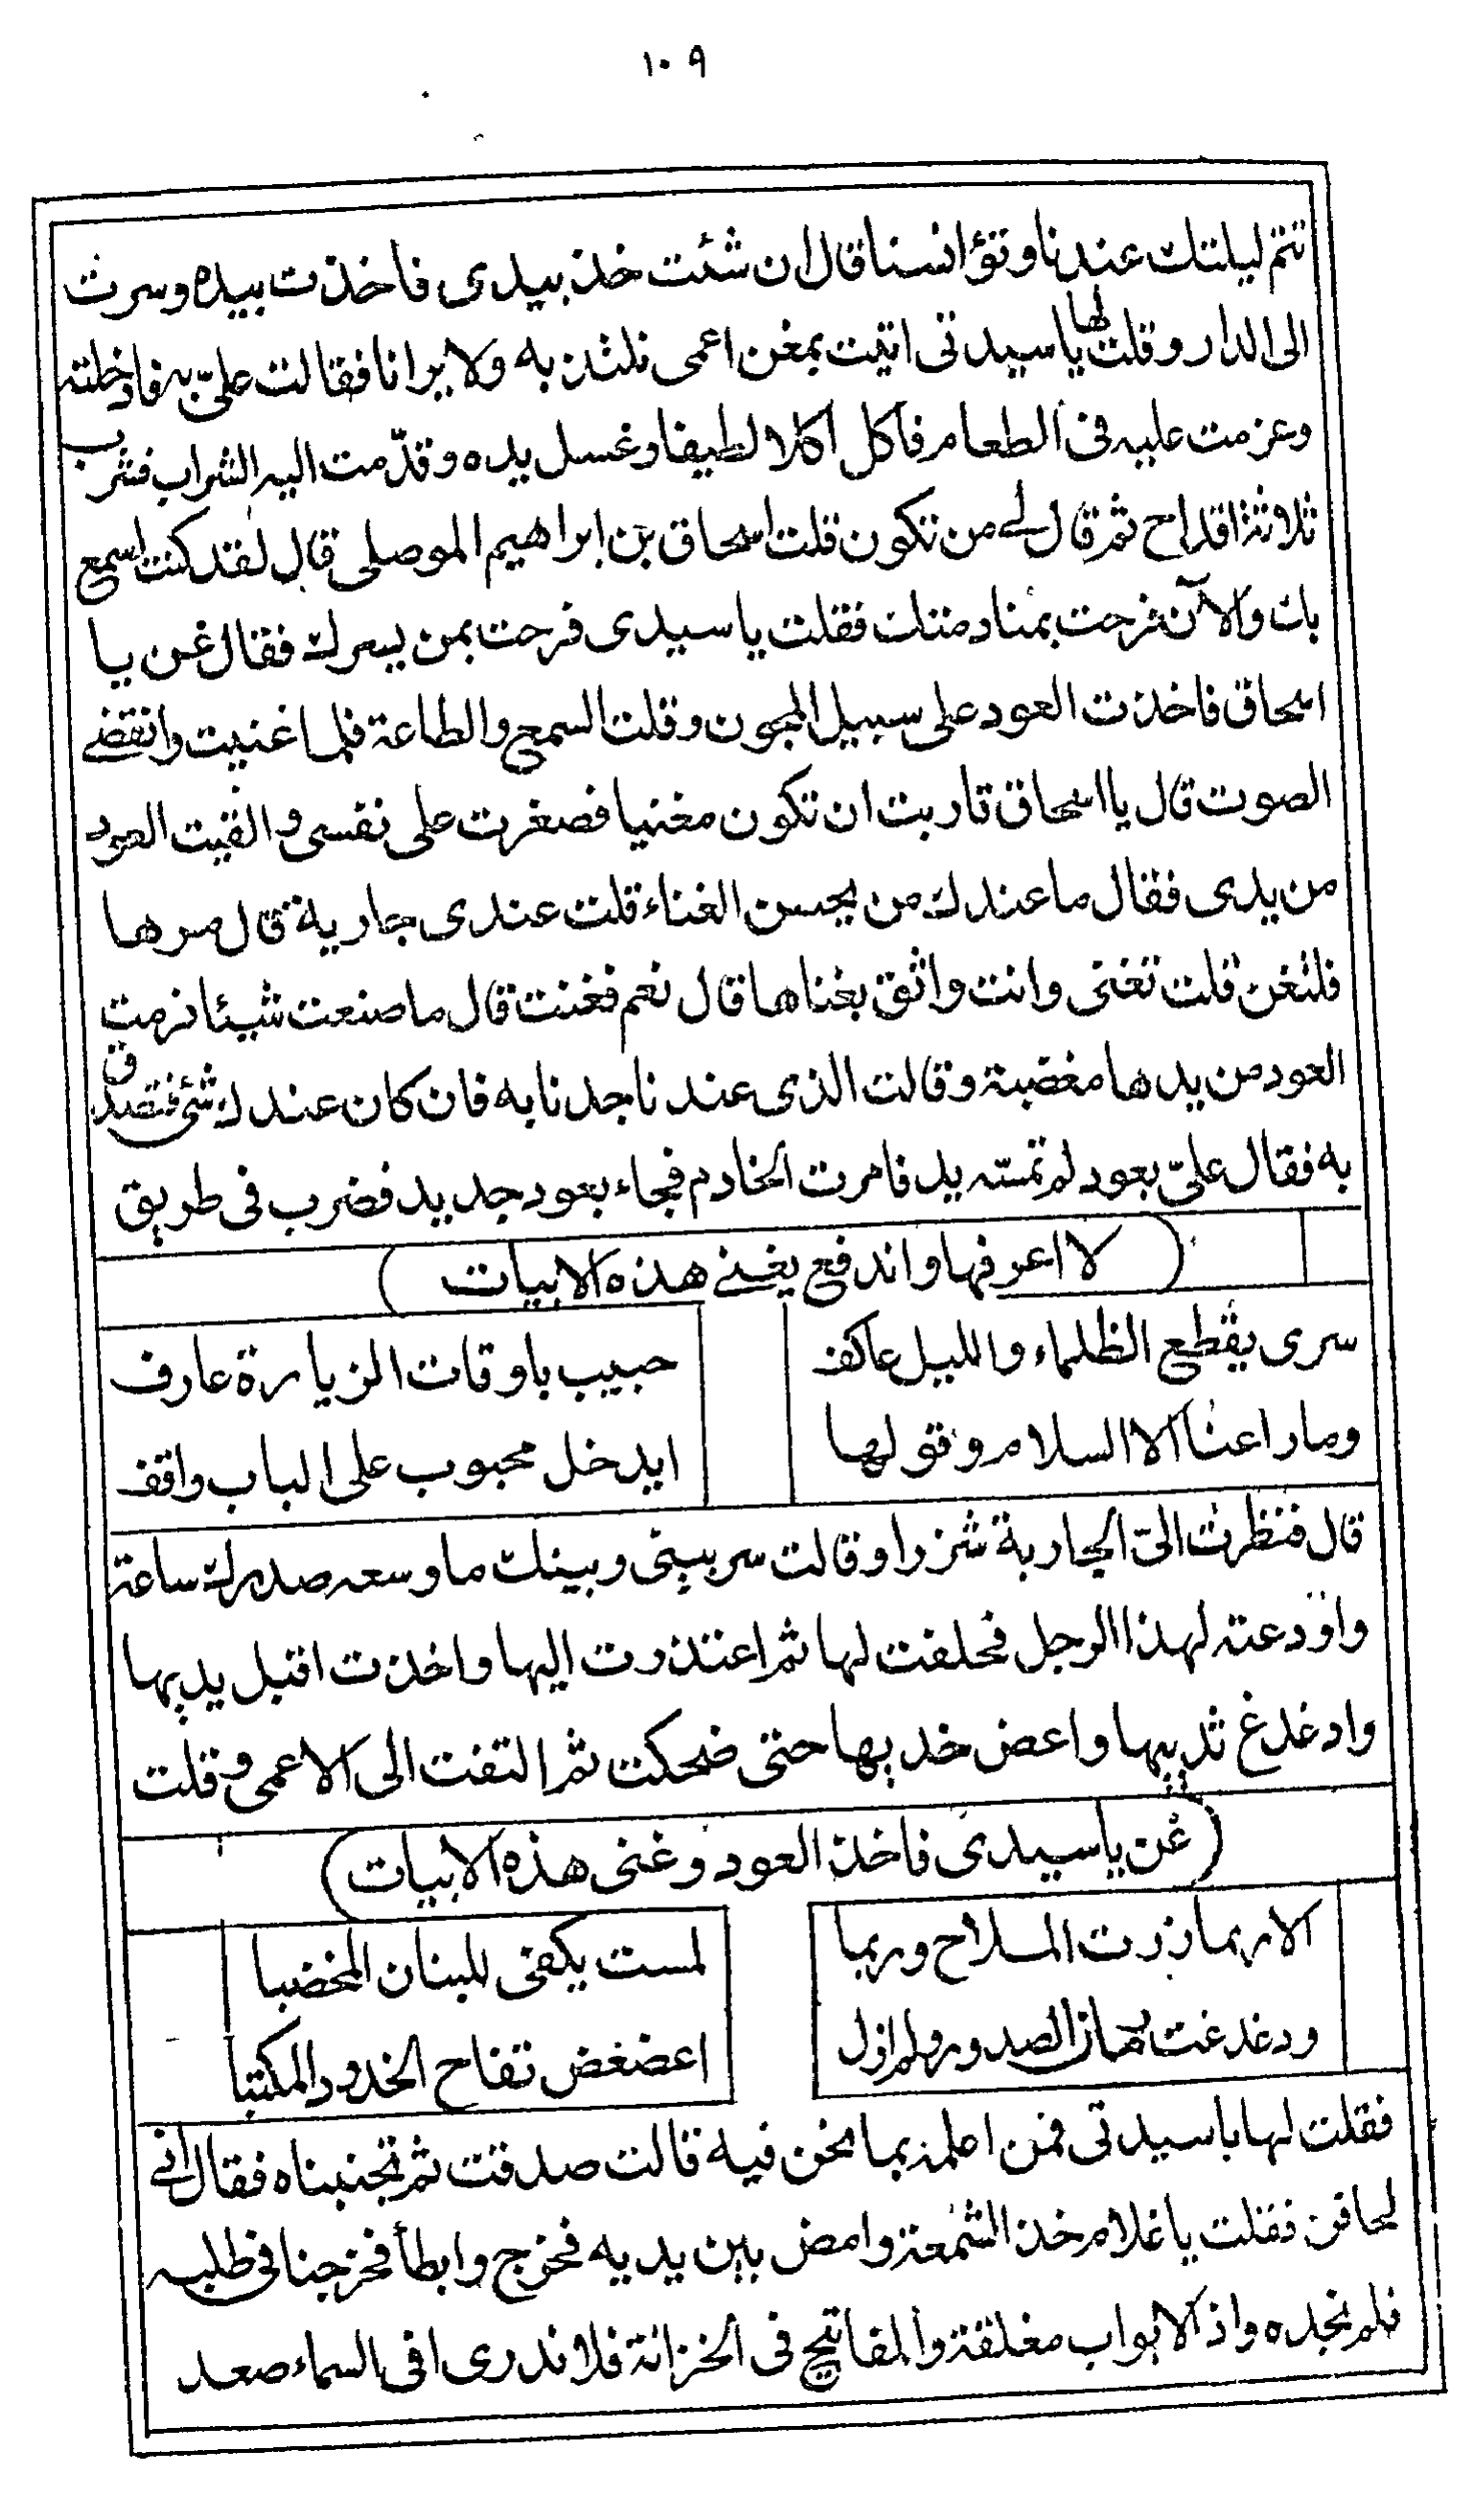 ١٠٩
تتم ليلتك عندنا وتؤانسنا قال ان شئت خذ بيدى فاخذت بيده وسرت
الى الدار وقلت لها يا سيدتى اتيت بمغن اعمى نلتذ به ولا يرانا فقالت علىّ به فادخلته
وعزمت عليه فى الطعام فاكل اكلا لطيفا وغسل يده وقدّمت اليه الشراب فشرب
ثلاثة اقداح ثم قال لى من تكون قلت اسحاق بن ابراهيم الموصلى قال لقد كنت اسمع
بك والآن فرحت بمنادمتك فقلت يا سيدى فرحت بمن يسرك فقال غن يا
اسحاق فاخذت العود على سبيل المجون وقلت السمع والطاعة فلما غنيت وانقضى
الصوت قال يا اسحاق قاربت ان تكون مغنيا فصغرت على نفسى والقيت العود
من يدى فقال ما عندك من يحسن الغناء قلت عندى جارية قال مرها
فلتغن قلت تغنى وانت واثق بغناها قال نعم فغنت قال ما صنعت شيئا فرمت
العود من يدها مغضبة وقالت الذى عندنا جدنا به فان كان عندك شئ فتصدق
به فقال علىّ بعود لم تمسّه يد فامرت الخادم فجاء بعود جديد فضرب فى طريق
(لا اعرفها واندفع يغنى هذه الابيات)
سرى يقطع الظلماء والليل عاكف حبيب باوقات الزيارة عارف
وما راعنا الا السلام وقولها ايدخل محبوب على الباب واقف
قال فنظرت الىّ الجارية شزرا وقالت سر بينى وبينك ما وسعه صدرك ساعة
واودعته لهذا الرجل فحلفت لها ثم اعتذرت اليها واخذت اقبل يديها
وادغدغ ثدييها واعض خديها حتى ضحكت ثم التفت الى الاعمى وقلت
(غن يا سيدى فاخذ العود وغنى هذه الابيات)
الا ربما زرت الملاح وربما لمست بكفى للبنان المخضبا
ودغدغت رمان الصدور ولم ازل اعضغض تفاح الخدود المكتبا
فقلت لها يا سيدتى فمن اعلمه بما نحن فيه قالت صدقت ثم تجنبناه فقال انى
لحاقن فقلت يا غلام خذ الشمعة وامض بين يديه فخرج وابطأ فخرجنا فى طلبه
فلم نجده واذ الابواب مغلقة والمفاتيح فى الخزانة فلا ندرى افى السماء صعد